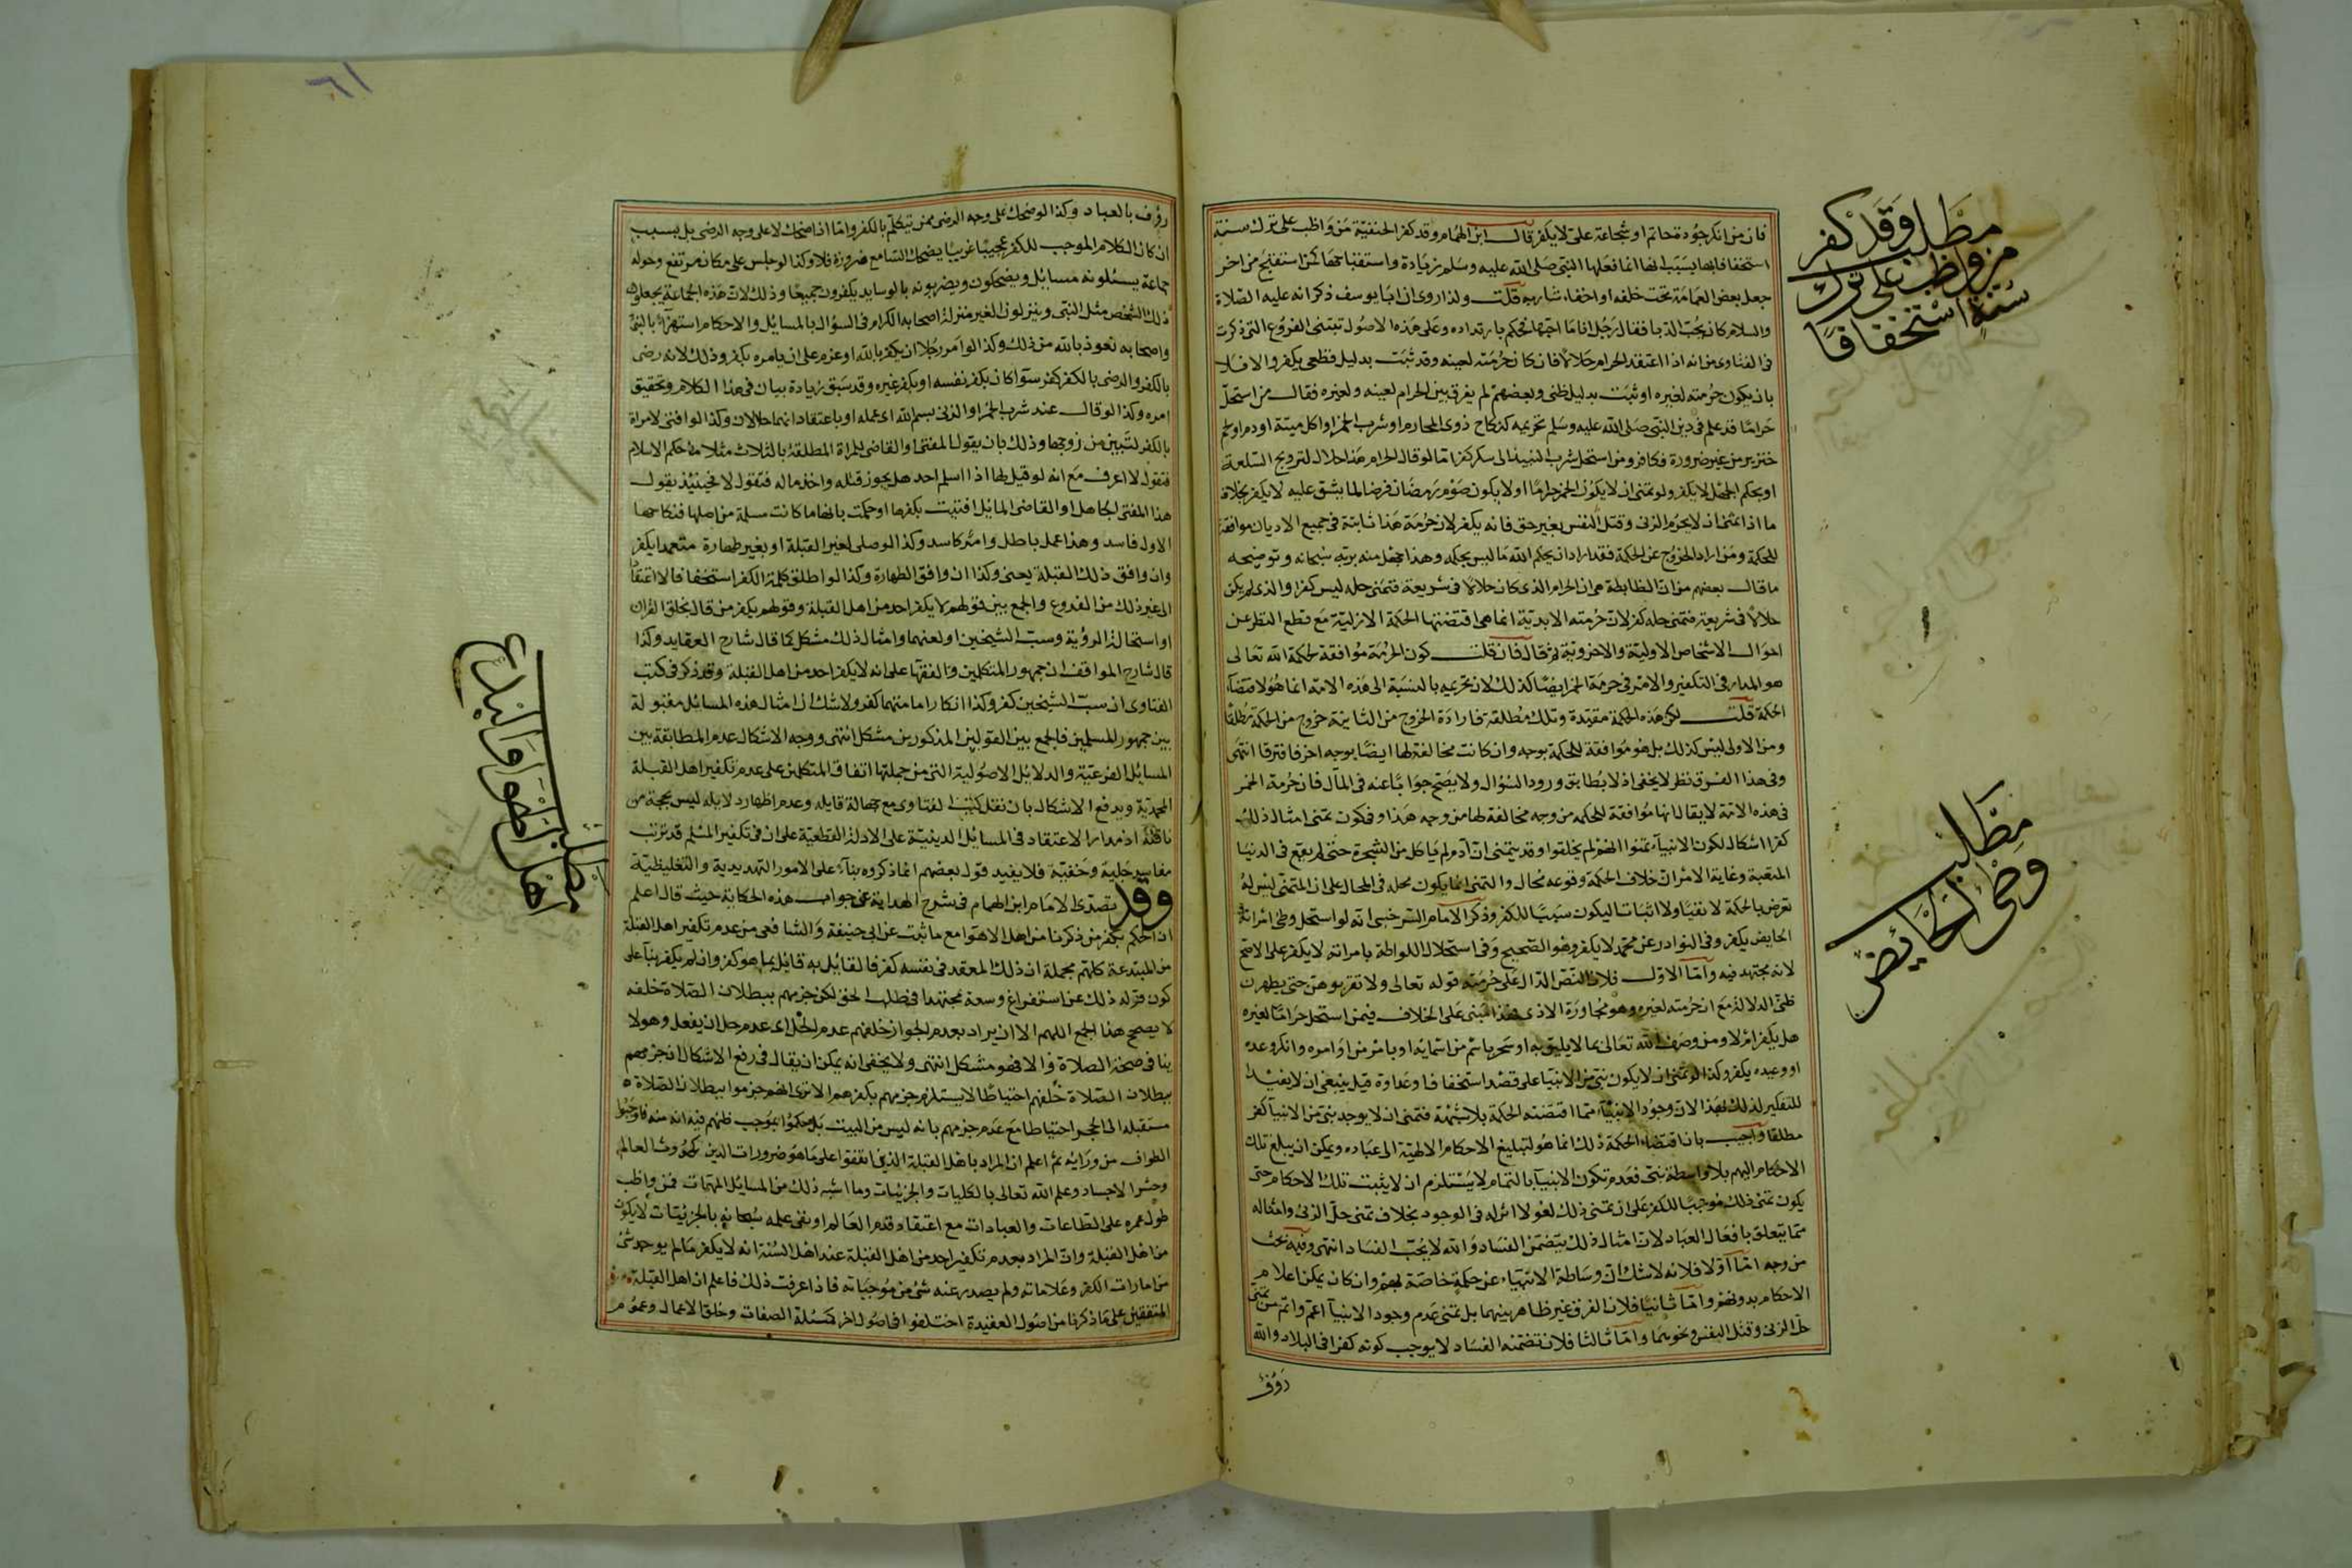 مطلب وقد كفر
من واظب على ترك
سنة استخفافا
فان من انكر جود حاتم او شجاعة على لا يكفر قال ابن الهمام وقد كفر الحنفية من واظب على ترك سنة
استخفافا بها بسبب انها انما فعلها النبى صلى الله عليه وسلم زيادة واستقباحها كمن استقبح من اخر
جعل بعض العمامة تحت خلقه او احفاء شاربه قلت ولذا روى ان ابا يوسف ذكر انه عليه الصلاة
والسلام كان يحب الدبا فقال رجل انا ما احبها فحكم بارتداده وعلى هذه الاصول تبتنى الفروع التى ذكرت
فى الفتاوى من انه اذا اعتقد الحرام حلالا فان كان حرمته لعينه وقد ثبت بدليل قطعى يكفر والا فلا
بان يكون حرمته لغيره او ثبت بدليل ظنى وبعضهم لم يفرق بين الحرام لعينه ولغيره فقال من استحل
حراما قد علم فى دين النبى صلى الله عليه وسلم تحريمه كنكاح ذوى المحارم او شرب الخمر او اكل ميتة او دم او لحم
خنزير من غير ضرورة فكافر ومن استحل شرب النبيذ الى سكر كفر اما لو قال لحرام هذا حلال لترويج السلعة
او بحكم الجهل لا يكفر ولو تمنى ان لا يكون الخمر حراما او لا يكون صوم رمضان فرضا لما يشق عليه لا يكفر بخلاف
ما اذا تمنى ان لا يحرم الزنى وقتل النفس بغير حق فانه يكفر لان حرمة هذا ثابتة فى جميع الاديان موافقة
للحكمة ومن اراد الخروج عن الحكمة فقد اراد ان يحكم الله ما ليس بحكمه وهذا جهل منه بربه سبحانه وتوضيحه
ما قال بعضهم من ان الظابطة هى ان الحرام الذى كان حلالا فى شريعة فتمنى حله ليس كفرا والذى لم يكن
حلالا فى شريعة فتمنى حله كفر لان حرمته الابدية انما هى اقتضتها الحكمة الازلية مع قطع النظر عن
احوال الاشخاص الاولية والاخروية ثم قال فان قلت كون الحرمة موافقة لحكمة الله تعالى
هو المدار فى التكفير والامر فى حرمة الخمر ايضا كذلك لان تحريمه بالنسبة الى هذه الامة انما هو لاقتضاء
الحكمة قلت لكن هذه الحكمة مقيدة وتلك مطلقة فارادة الخروج من الثانية خروج من الحكمة مطلقا
ومن الاولى ليس كذلك بل هو موافقة للحكمة بوجه وان كانت مخالفة لها ايضا بوجه اخر فافترقا انتهى
وفى هذا الفرق نظر لا يخفى اذ لا يطابق ورود السؤال ولا يصح جوابا عنه فى المآل فان حرمة الخمر
فى هذه الامة لا يقال انها موافقة للحكمة من وجه مخالفة لها من وجه هذا وفى كون تمنى امثال ذلك
كفرا اشكال لكون الانبياء تمنوا انهم لم يخلقوا وقد يتمنى ان آدم لم ياكل من الشجرة حتى لم يقع فى الدنيا
المتعبة وغاية الامر ان خلاف الحكمة وقوعه محال والتمنى انما يكون محله فى المحال على ان المتمنى ليس له
تعرض بالحكمة لا نفيا ولا اثباتا ليكون سببا للكفر وذكر الامام السرخسى انه لو استحل وطئ امراته
الحايض يكفر وفى النوادر عن محمد لا يكفر وهو الصحيح وفى استحلال اللواطة بامراته لا يكفر على الاصح
لانه مجتهد فيه واما الاول فلان النص الدال على حرمته قوله تعالى ولا تقربوهن حتى يطهرن
ظنى الدلالة مع ان حرمته لغيره وهو مجاورة الاذى فهذا مبنى على الخلاف فيمن استحل حراما لغيره
هل يكفر ام لا ومن وصف الله تعالى بما لا يليق به او سخر باسم من اسمائه او بامر من اوامره وانكر وعده
او وعيده يكفر وكذا لو تمنى ان لا يكون نبى من الانبيا على قصد استخفاف او عداوة قيل ينبغى ان لا يفيد
للتفكير لذلك لهذا لان وجود الانبياء مما اقتضته الحكمة بلا شبهة فتمنى ان لا يوجد نبى من الانبيا كفر
مطلقا واجيب بان اقتضاء الحكمة ذلك انما هو لتبليغ الاحكام الالهية الى عباده ويمكن ان يبلغ تلك
الاحكام اليهم بلا واسطة نبى فعدم تكون الانبيآء بالتمام لا يستلزم ان لا يثبت تلك الاحكام حتى
يكون تمنى ذلك موجبا للكفر على ان تمنى ذلك لغو لا اثر له فى الوجود بخلاف تمنى حل الزنى وامثاله
مما يتعلق بافعال العباد لان امثال ذلك يتضمن الفساد والله لا يحب الفساد انتهى وفيه بحث
من وجوه اما اولا فلانه لا شك ان وساطة الانبياء عن حكمة خاصة لهم وان كان يمكن اعلام
الاحكام بدونهم واما ثانيا فلان الفرق غير ظاهر بينهما بل تمنى عدم وجود الانبيآ اعم واتم من تمنى
حل الزنى وقتل النفس ونحوهما واما ثالثا فلان تضمنه الفساد لا يوجب كونه كفرا فى البلاد والله
رؤف
مطلب
وطئ الحائض
٦١
رؤف بالعباد وكذا لو ضحك على وجه الرضى ممن تيكلم بالكفر واما اذا ضحك لا على وجه الرضى بل بسبب
ان كان الكلام الموجب للكفر عجيبا غريبا يضحك السامع ضرورة فلا وكذا لو جلس على مكان مرتفع وحوله
جماعة يسئلونه مسايل ويضحكون ويضربونه بالوسايد يكفرون جميعا وذلك لان هذه الجماعة يجعلون
ذلك الشخص مثل النبى وينزلون الغير منزلة اصحابه الكرام فى السؤال بالمسايل والاحكام استهزآء بالنبى
واصحابه نعوذ بالله من ذلك وكذا لو امر رجلا ان يكفر بالله او عزم على ان يامره بكفر وذلك لانه رضى
بالكفر والرضى بالكفر كفر سوآ كان بكفر نفسه او بكفر غيره وقد سبق زيادة بيان فى هذا الكلام وتحقيق
امره وكذا لو قال عند شرب الخمر او الزنى بسم الله اى عمله او باعتقاد انهما حلالان وكذا لو افتى لامراة
بالكفر لتبين من زوجها وذلك بان يقول المفتى او القاضى للمراة المطلقة بالثلاث مثلا ما حكم الاسلام
فتقول لا اعرف مع انه لو قيل لها اذا اسلم احد هل يجوز قتله واخذ ماله فتقول لا فحينئذ يقول
هذا المفتى الجاهل او القاضى المايل افتيت بكفرها او حكمت بانها ما كانت مسلمة من اصلها فنكاحها
الاول فاسد وهذا عمل باطل وامر كاسد وكذا لو صلى لغير القبلة او بغير طهارة متعمدا يكفر
وان وافق ذلك القبلة يعنى وكذا ان وافق الطهارة وكذا لو اطلق كلمة الكفر استخفافا لا اعتقادا
الى غير ذلك من الفروع والجمع بين قولهم لا يكفر احد من اهل القبلة وقولهم يكفر من قال بخلق القران
او استحالة الرؤية وسب الشيخين او لعنهما وامثال ذلك مشكل كما قال شارح العقايد وكذا
قال شارح المواقف ان جمهور المتكلمين والفقها على انه لا يكفر احد من اهل القبلة وقد ذكر فى كتب
الفتاوى ان سب الشيخين كفر وكذا انكار امامتهما كفر ولا شك ان امثال هذه المسايل مقبولة
بين جمهور المسلمين فالجمع بين القولين المذكورين مشكل انتهى ووجه الاشكال عدم المطابقة بين
المسايل الفرعية والدلايل الاصولية التى من جملتها اتفاق المتكلمين على عدم تكفير اهل القبلة
المحمدية ويدفع الاشكال بان نقل كتب الفتاوى مع جهالة قايله وعدم اظهار دلايله ليس بحجة من
ناقله اذ مدار الاعتقاد فى المسايل الدينية على الادلة القطعية على ان فى تكفير المسلم قد ترتب
مفاسد جلية وخفية فلا يفيد قول بعضهم انما ذكروه بنآء على الامور التهديدية والتغليظية
وقد تصدى الامام ابن الهمام فى شرح الهداية عن جواب هذه الحكاية حيث قال اعلم
ان الحكم بكفر من ذكرنا من اهل الاهوآ مع ما ثبت عن ابى حنيفة والشافعى من عدم تكفير اهل القبلة
من المبتدعة كلهم محمله ان ذلك المعقد فى نفسه كفر فالقايل به قايل بما هو كفر وان لم يكفر بنآ على
كون قوله ذلك عن استفراغ وسعه مجتهدا فى طلب الحق لكن جزمهم ببطلان الصلاة خلفه
لا يصحح هذا الجمع اللهم الا ان يراد بعدم الجواز خلفهم عدم الحل اى عدم حل ان يفعل وهو لا
ينافى صحة الصلاة والا فهو مشكل انتهى ولا يخفى انه يمكن ان يقال فى رفع الاشكال ان جزمهم
ببطلان الصلاة خلفهم احتياطا لا يستلزم جزمهم بكفرهم الا ترى انهم جزموا ببطلان الصلاة
مستقبلا الى الحجر احتياطا مع عدم جزمهم بانه ليس من البيت بل حكموا بموجب ظنهم فيه انه منه فاوجبوا
الطواف من ورائه ثم اعلم ان المراد باهل القبلة الذين اتفقوا على ما هو ضرورات الدين كحدوث العالم
وحشر الاجساد وعلم الله تعالى بالكليات والجزئيات وما اشبه ذلك من المسايل المهمات فمن واظب
طول عمره على الطاعات والعبادات مع اعتقاد قدم العالم او نفى علمه سبحانه بالجزئيات لا يكون
من اهل القبلة وان المراد بعدم تكفير احد من اهل القبلة عند اهل السنة انه لا يكفر ما لم يوجد شئ
من امارات الكفر وعلاماته ولم يصدر عنه شئ من موجباته فاذا عرفت ذلك فاعلم ان اهل القبلة
المتفقين على ما ذكرنا من اصول العقيدة اختلفوا فى اصول اخر كمسئلة الصفات وخلق الاعمال وعموم
مطلب
اهل الاهوآ والبدع